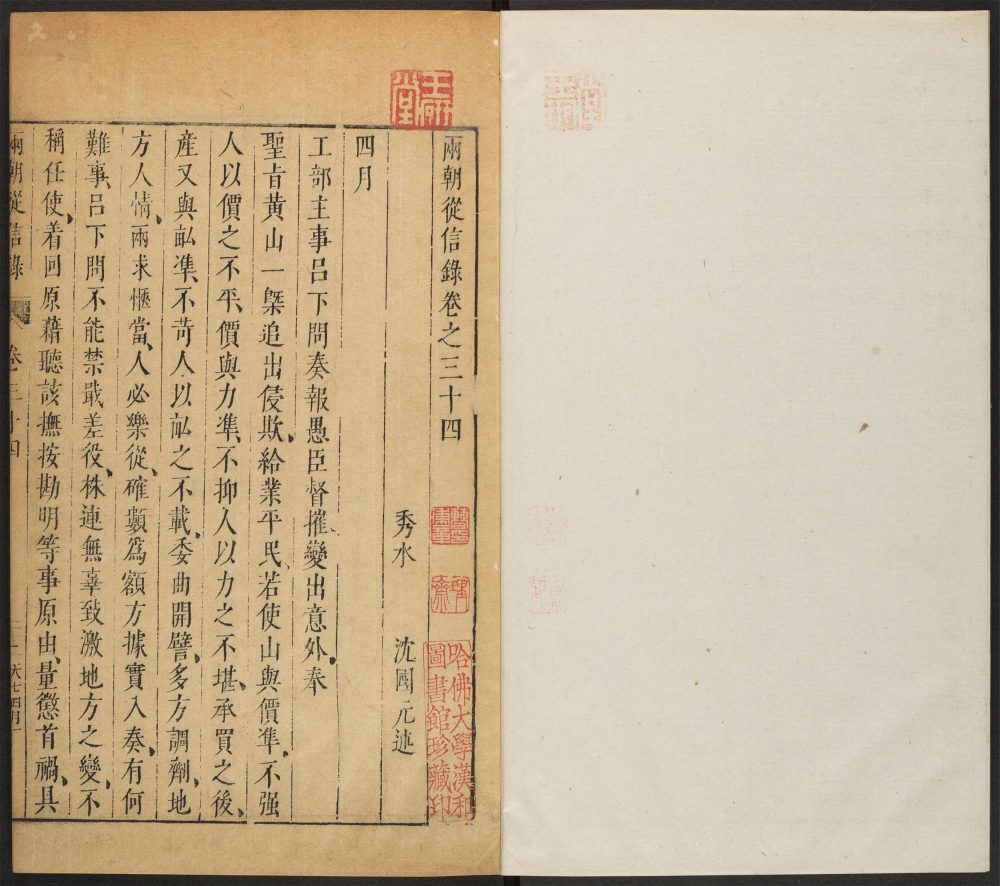 兩朝從信錄卷之三十四
秀水 沈國元述
四月
工部主事呂下問奏報愚臣督摧變出意外、奉
聖旨黃山一槩追出侵欺、給業平民、若使山與價準、不强
人以價之不平、價與力準、不抑人以力之不堪、承買之後、
產又與畝準、不苛人以畝之不載、委曲開譬、多方調劑、地
方人情、兩求愜當、人必樂從、確數爲額方據實入奏、有何
難事、呂下問不能禁戢差役、株連無辜致激地方之變、不
稱任使、着回原藉聽該撫按勘明等事原由、量懲首禍、具
兩朝從信錄 卷三十四 一 天七四月一
哈佛大學漢和
圖書館珍藏印